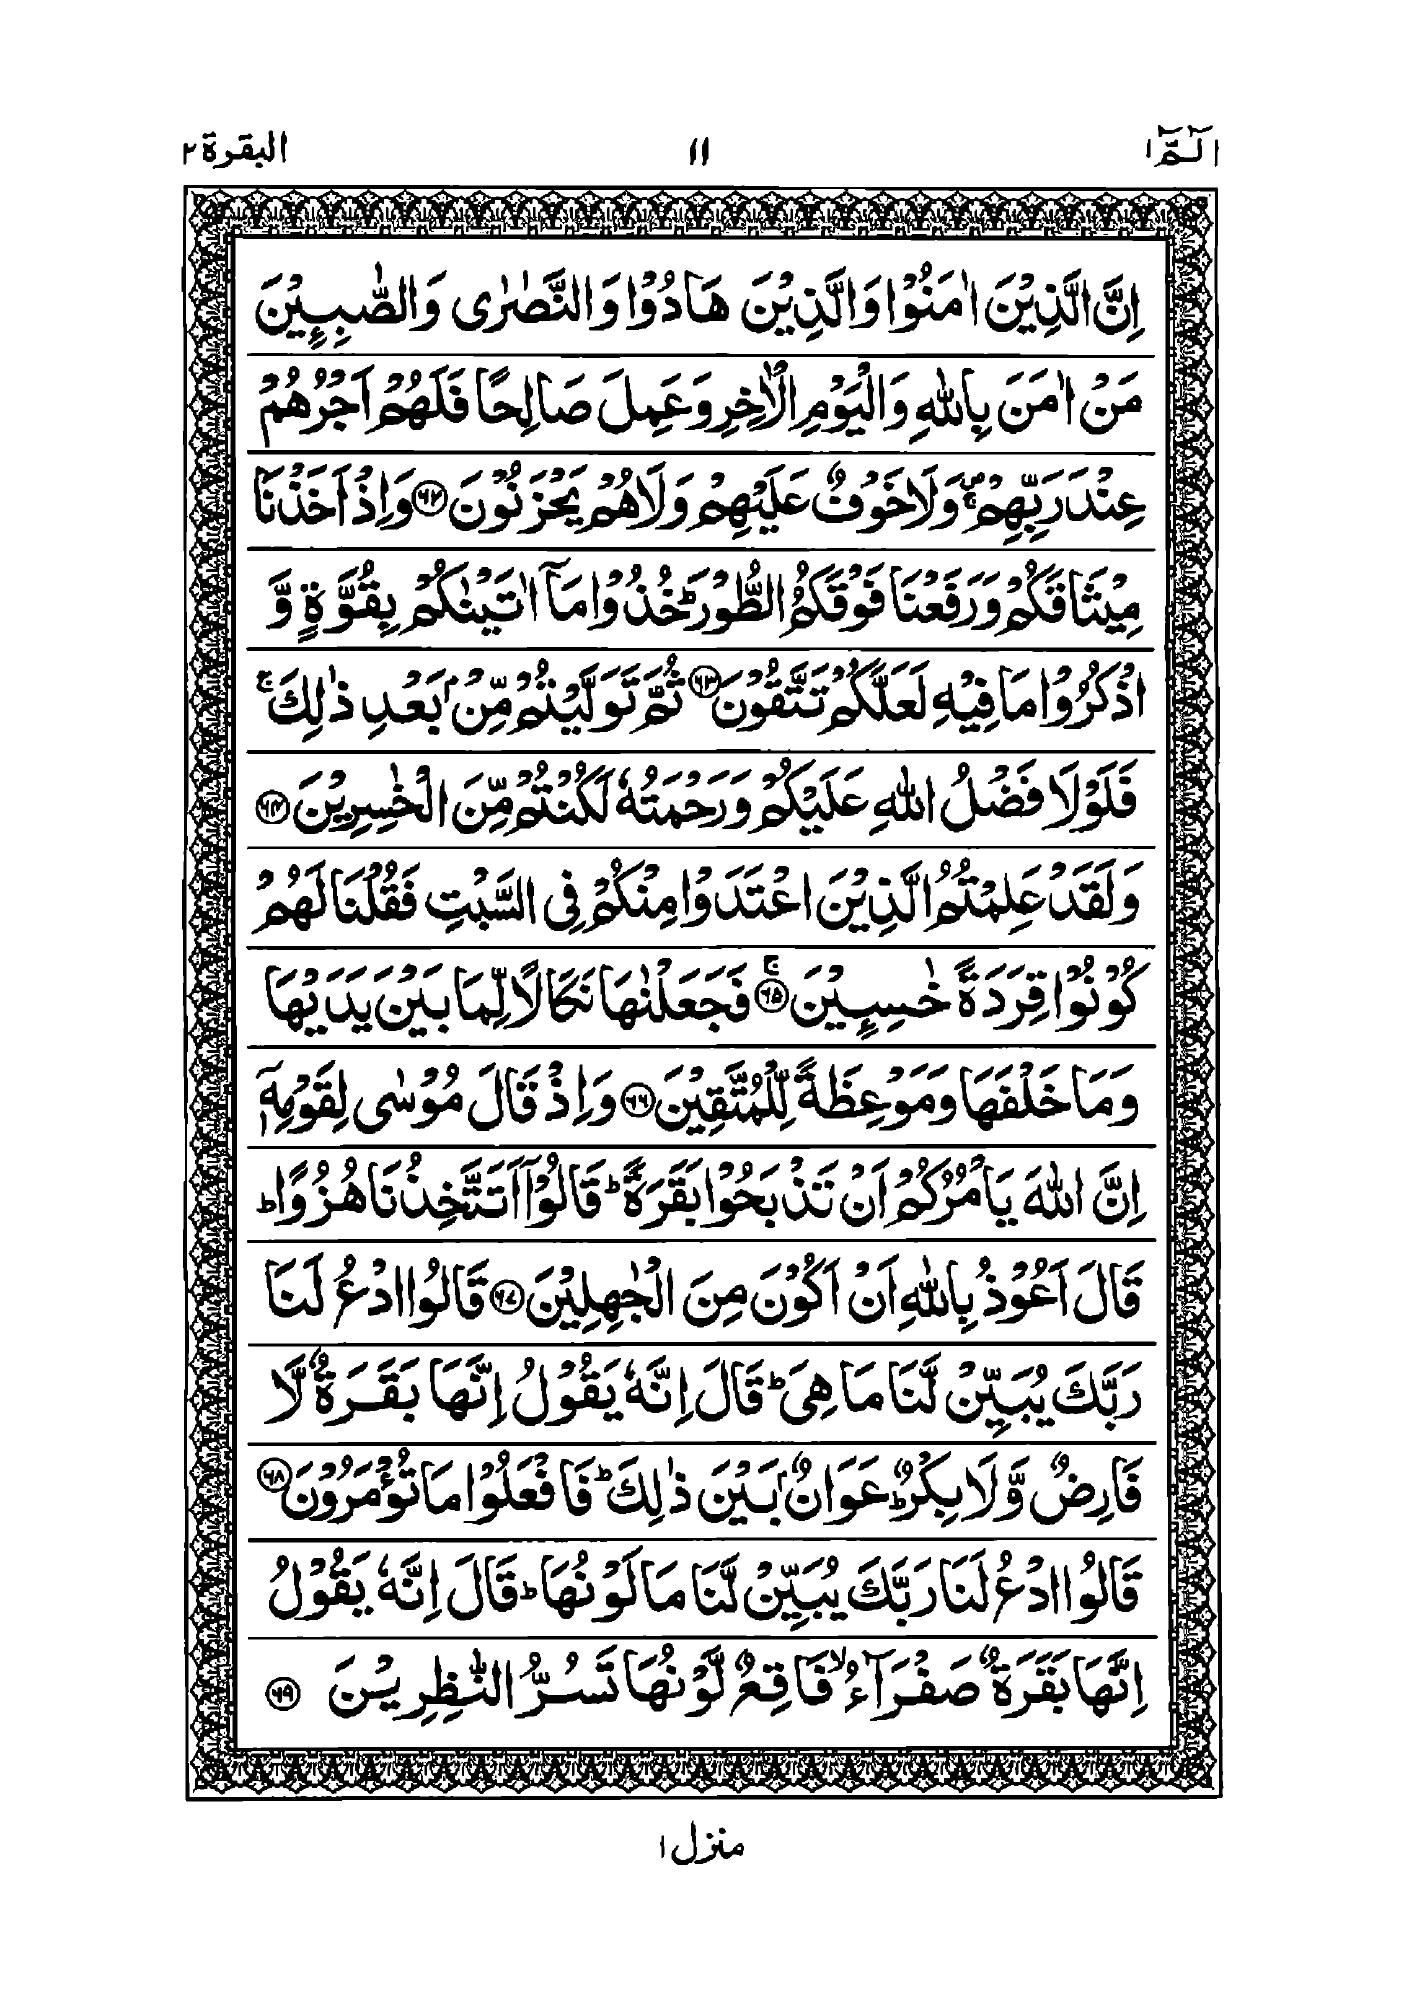 الٓمّٓ ١ ١١ البقرة ٢
اِنَّ الَّذِيْنَ اٰمَنُوْا وَالَّذِيْنَ هَادُوْا وَالنَّصٰرٰى وَالصّٰبِـِٕيْنَ
مَنْ اٰمَنَ بِاللّٰهِ وَالْيَوْمِ الْاٰخِرِ وَعَمِلَ صَالِحًا فَلَهُمْ اَجْرُهُمْ
عِنْدَ رَبِّهِمْ ۖۚ وَلَا خَوْفٌ عَلَيْهِمْ وَلَا هُمْ يَحْزَنُوْنَ ﴿۶۲﴾ وَاِذْ اَخَذْنَا
مِيْثَاقَكُمْ وَرَفَعْنَا فَوْقَكُمُ الطُّوْرَ ؕ خُذُوْا مَآ اٰتَيْنٰكُمْ بِقُوَّةٍ وَّ
اذْكُرُوْا مَا فِيْهِ لَعَلَّكُمْ تَتَّقُوْنَ ﴿۶۳﴾ ثُمَّ تَوَلَّيْتُمْ مِّنْۢ بَعْدِ ذٰلِكَ ۚ
فَلَوْلَا فَضْلُ اللّٰهِ عَلَيْكُمْ وَرَحْمَتُهٗ لَكُنْتُمْ مِّنَ الْخٰسِرِيْنَ ﴿۶۴﴾
وَلَقَدْ عَلِمْتُمُ الَّذِيْنَ اعْتَدَوْا مِنْكُمْ فِى السَّبْتِ فَقُلْنَا لَهُمْ
كُوْنُوْا قِرَدَةً خٰسِـِٕيْنَ ﴿۶۵﴾ ۚ فَجَعَلْنٰهَا نَكَالًا لِّمَا بَيْنَ يَدَيْهَا
وَمَا خَلْفَهَا وَمَوْعِظَةً لِّلْمُتَّقِيْنَ ﴿۶۶﴾ وَاِذْ قَالَ مُوْسٰى لِقَوْمِهٖٓ
اِنَّ اللّٰهَ يَاْمُرُكُمْ اَنْ تَذْبَحُوْا بَقَرَةً ؕ قَالُوْٓا اَتَتَّخِذُنَا هُزُوًا ؕ
قَالَ اَعُوْذُ بِاللّٰهِ اَنْ اَكُوْنَ مِنَ الْجٰهِلِيْنَ ﴿۶۷﴾ قَالُوا ادْعُ لَنَا
رَبَّكَ يُبَيِّنْ لَّنَا مَا هِىَ ؕ قَالَ اِنَّهٗ يَقُوْلُ اِنَّهَا بَقَرَةٌ لَّا
فَارِضٌ وَّلَا بِكْرٌ ؕ عَوَانٌۢ بَيْنَ ذٰلِكَ ؕ فَافْعَلُوْا مَا تُؤْمَرُوْنَ ﴿۶۸﴾
قَالُوا ادْعُ لَنَا رَبَّكَ يُبَيِّنْ لَّنَا مَا لَوْنُهَا ؕ قَالَ اِنَّهٗ يَقُوْلُ
اِنَّهَا بَقَرَةٌ صَفْرَآءُ ۙ فَاقِعٌ لَّوْنُهَا تَسُرُّ النّٰظِرِيْنَ ﴿۶۹﴾
منزل ١